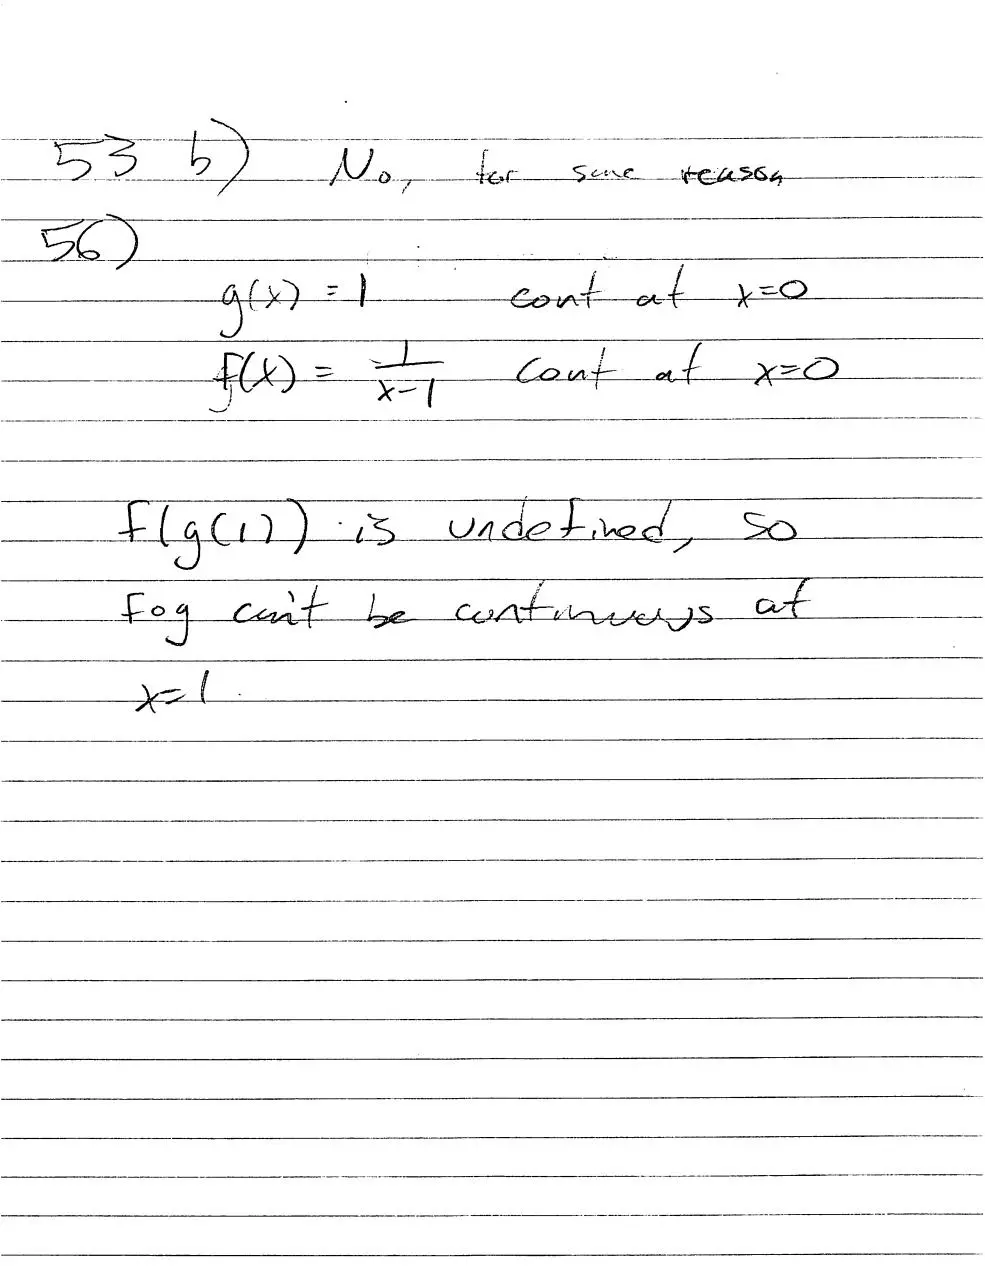 53 b) No, for same reason
56)
g(x) = 1 cont at x=0
f(x) = 1/(x-1) cont at x=0
f(g(1)) is undefined, so
fog can't be continuous at
x=1.